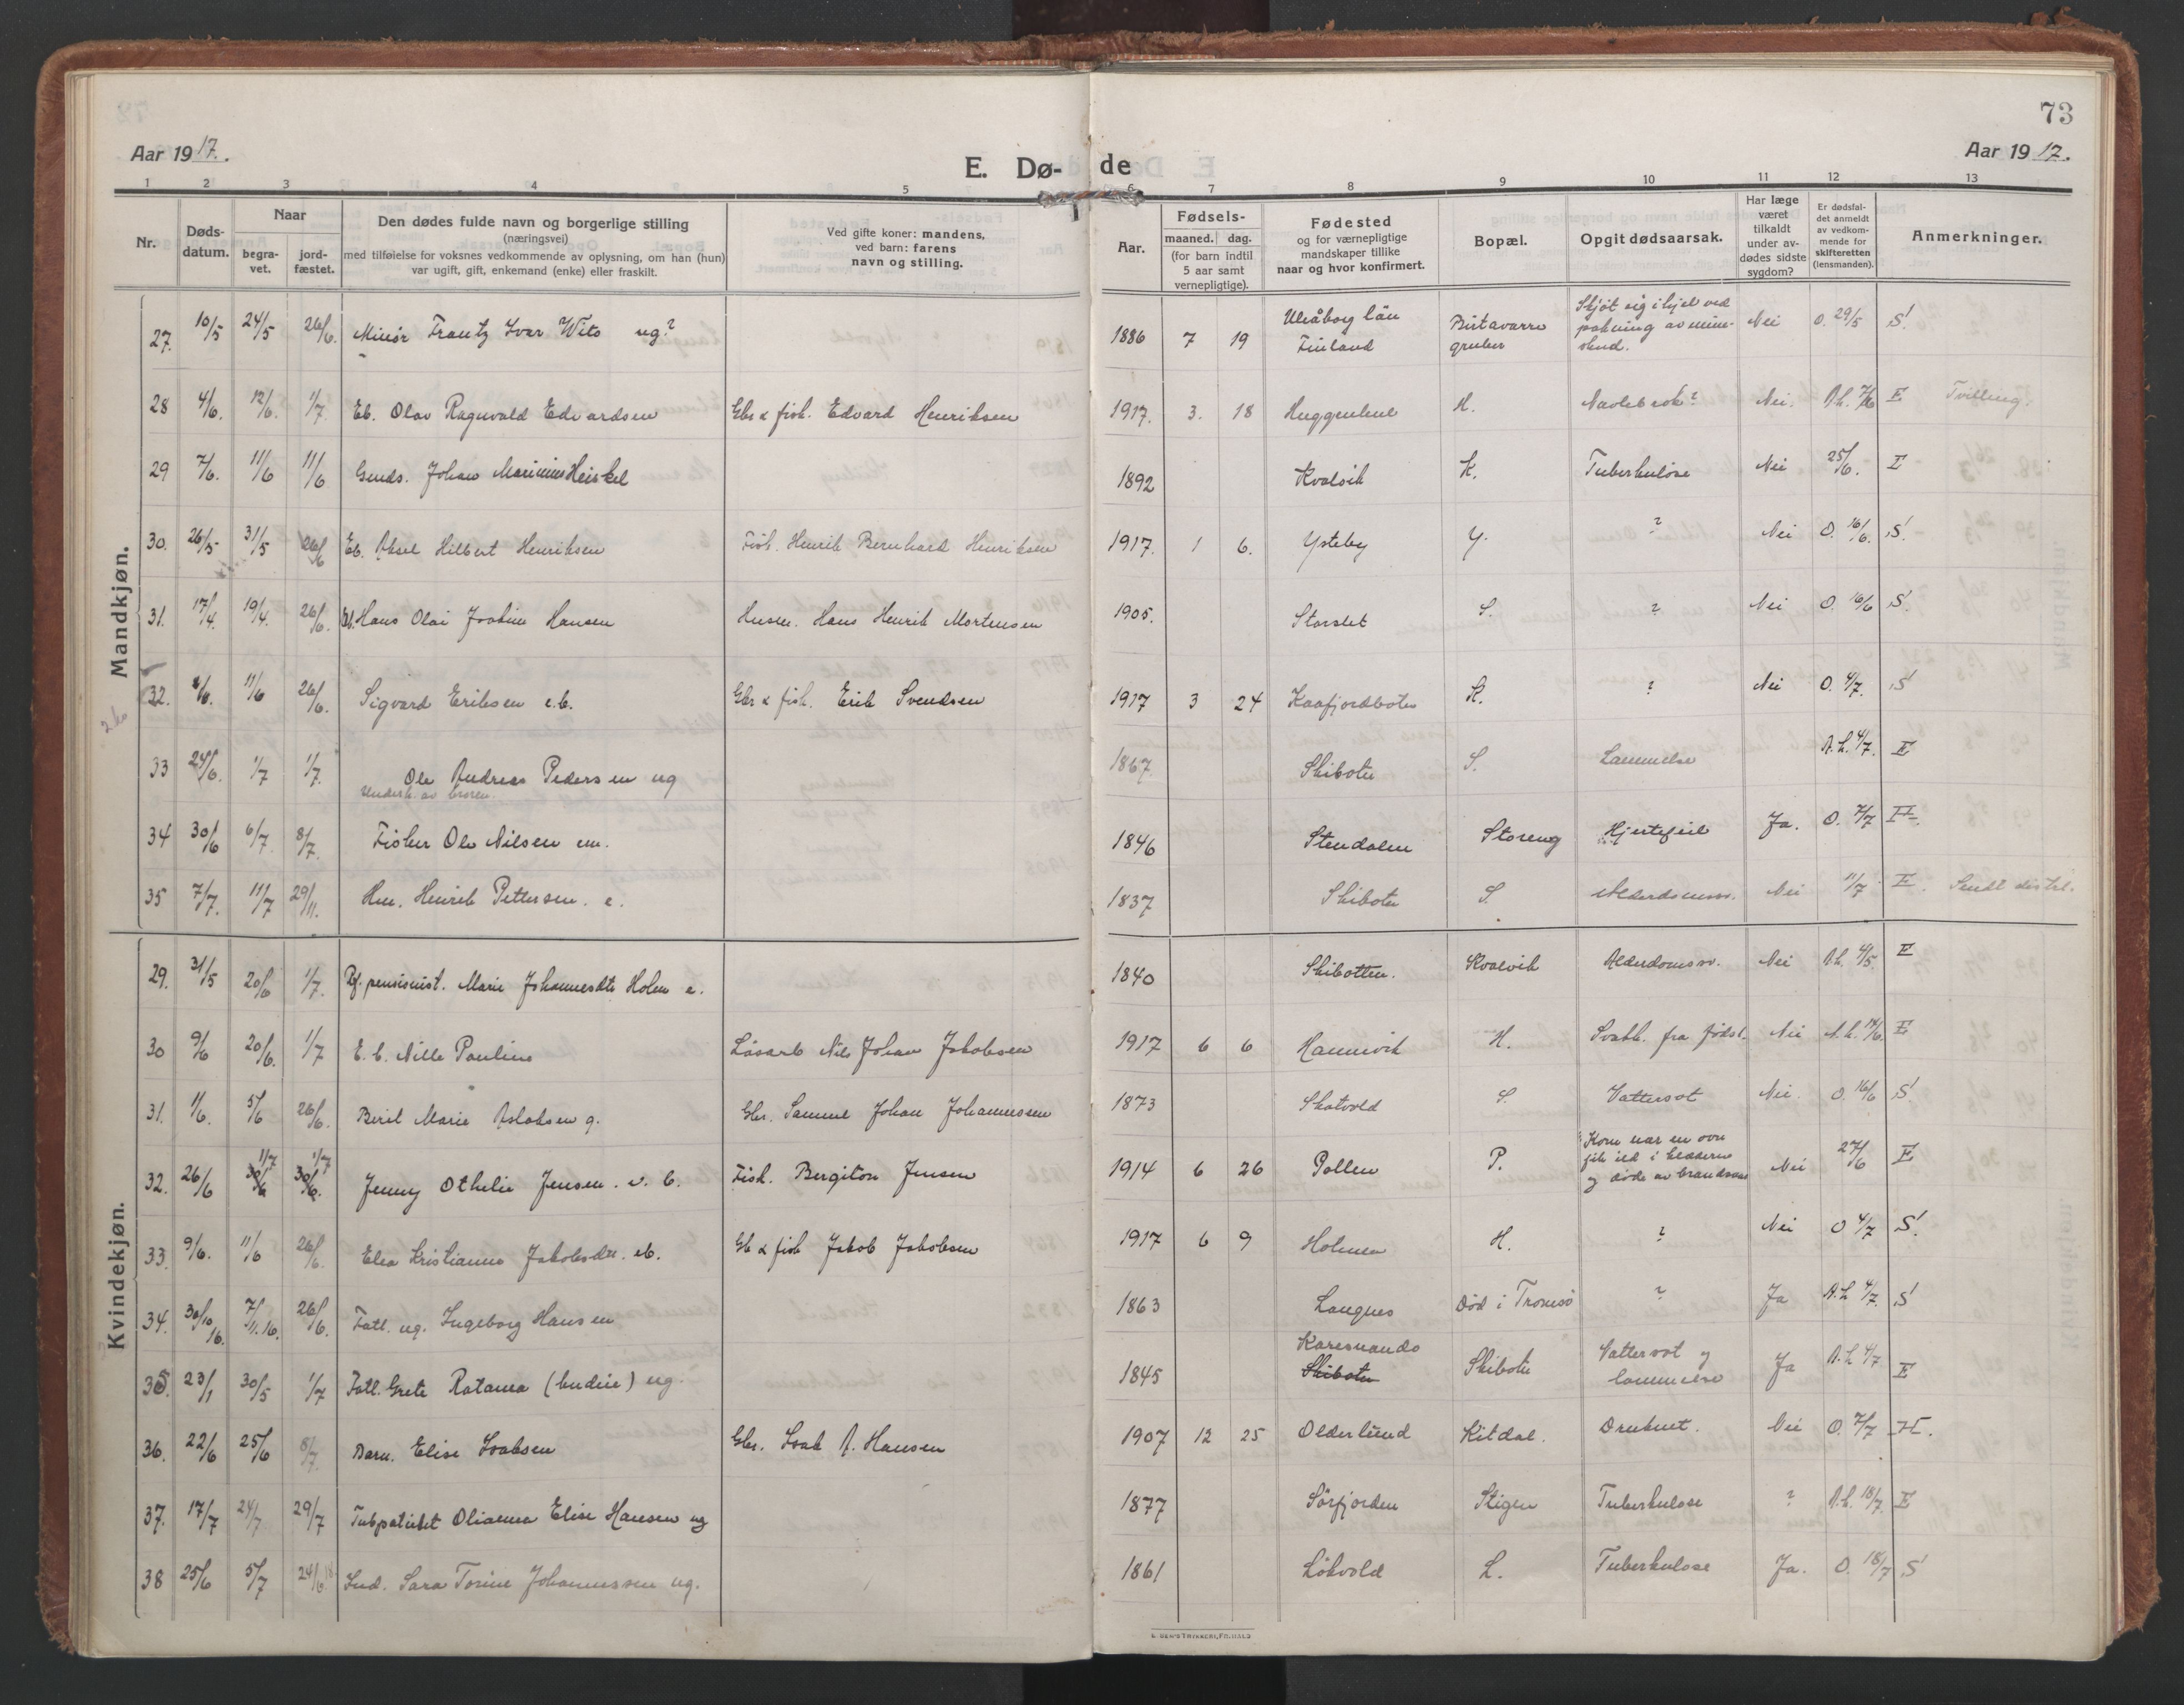 73
Aar 1917.
E. Dø-de
Aar 1917.
1 2 3 4 5 6 7 8 9 10 11 12 13
Nr.
Døds-
datum.
Naar
begra-
vet.
jord-
fæstet.
Den dødes fulde navn og borgerlige stilling
(næringsvei)
med tilføielse for voksnes vedkommende av oplysning, om han (hun)
var ugift, gift, enkemand (enke) eller fraskilt.
Ved gifte koner: mandens,
ved barn: farens
navn og stilling.
Aar.
Fødsels-
maaned. dag.
(for barn indtil
5 aar samt
vernepligtige).
Fødested
og for værnepligtige
mandskaper tillike
naar og hvor konfirmert.
Bopæl.
Opgit dødsaarsak.
Har læge
været
tilkaldt
under av-
dødes sidste
sygdom?
Er dødsfal-
det anmeldt
av vedkom-
mende for
skifteretten
(lensmanden).
Anmerkninger.
Mandkjøn.
27. 10/5 24/5 26/6. Minør Frantz Ivar Wito ug? 1886 7 19 Uleåborg län Finland Birtavarre gruber Skjøt sig ihjel ved pakning av mine-skud. Nei O. 29/5 S!
28 4/6. 12/6. 1/7. Eb. Olav Ragnvald Edvardsen Gbr & fisk. Edvard Henriksen 1917. 3. 18 Huggenhul H. Navlebrok? Nei. A.L. 7/6 E Tvilling.
29 7/6. 11/6 11/6 Gmds. Johan Marinius Heiskel 1892 Kvalvik K. Tuberkuløse Nei 25/6. E
30. 26/5 31/5 26/6 Eb. Aksel Hilbert Henriksen Fisk. Henrik Bernhard Henriksen 1917. 1 6. Ysteby Y. ? Nei O. 16/6. S!
31. 17/4. 19/4. 26/6. Hans Olai Joakim Hansen Husm. Hans Henrik Mortensen 1905. Storslet S. ? Nei O. 16/6 S!
32. 11/6 26/6. Sigvard Eriksen e.b. Gbr & fisk. Erik Svendsen 1917 3 24 Kaafjordbotn K. ? Nei O. 4/7. S!
33 24/6. 1/7 1/7. Ole Andreas Pedersen ug 1867 Skibotn S. Lammelse A.L. 4/7. E
Underh. av broren.
34 30/6 6/7. 8/7. Fisker Ole Nilsen em. 1846 Stendalen Storeng Hjertefeil Ja. O. 7/7
35 7/7. 11/7 29/11. Henrik Pettersen. e. 1837 Skibotn S. Alderdomssv. Nei 11/7 E. Sendt
Kvindekjøn.
29. 31/5 20/6 1/7. Pf. pensionist. Marie Johannesdtr Holm e. 1840 Skibotten. Kvalvik Alderdomssv. Nei A.L. 4/5. E
30 9/6 20/6. 1/7 E.b. Nille Pauline Løsarb Nils Johan Jakobsen 1917 6 6 Hamnvik H. Svakh. fra fødsl. Nei A.L. 14/6. E
31. 1/6. 5/6 26/6. Beril Marie Aslaksen g. Gbr. Samuel Johan Johannessen 1873 Skatvold S. Vattersot Nei. O 16/6 S!
32. 26/6 1/7 1/7 30/6. Jenny Othelie Jensen. e. b. Fisk. Bergiton Jensen 1914 6 26 Pollen P. Kom nær en ovn fik ild i klæderne og døde av brandsaar Nei 27/6 E
33. 9/6. 11/6 26/6. Elea Kristianna Jakobsdtr. eb. Gb & fisk Jakob Jakobsen 1917 6 9 Holmen H. ? Nei O 4/7 S!
34. 30/10 16. 7/11.16. 26/6. Fatl. ug. Ingeborg Hansen 1863 Langnes Død i Tromsø ? Ja A.L 4/7. S!
35. 23/1 30/5 1/7 Fatl. Grete Ratama (budeie) ug. 1845 Karesuando Skibotn Skibotn Vattersot og lammelse Ja A.L 4/7 E
36. 22/6 25/6 8/7. Barn. Elise Isaksen Gbr. Isak A. Hansen 1907 12 25 Olderlund Kitdal. Druknet. Nei O. 7/7
37. 17/7 24/7 29/7 Tubpatient Olianna Elise Hansen ug 1877 Sørfjorden Stigen Tuberkulose ? A.L. 18/7. E
38 25/6 5/7 24/6 18. Ind. Sara Torine Johannessen ug. 1861 Løkvold L. Tuberkulose Ja. O. 18/7 S!